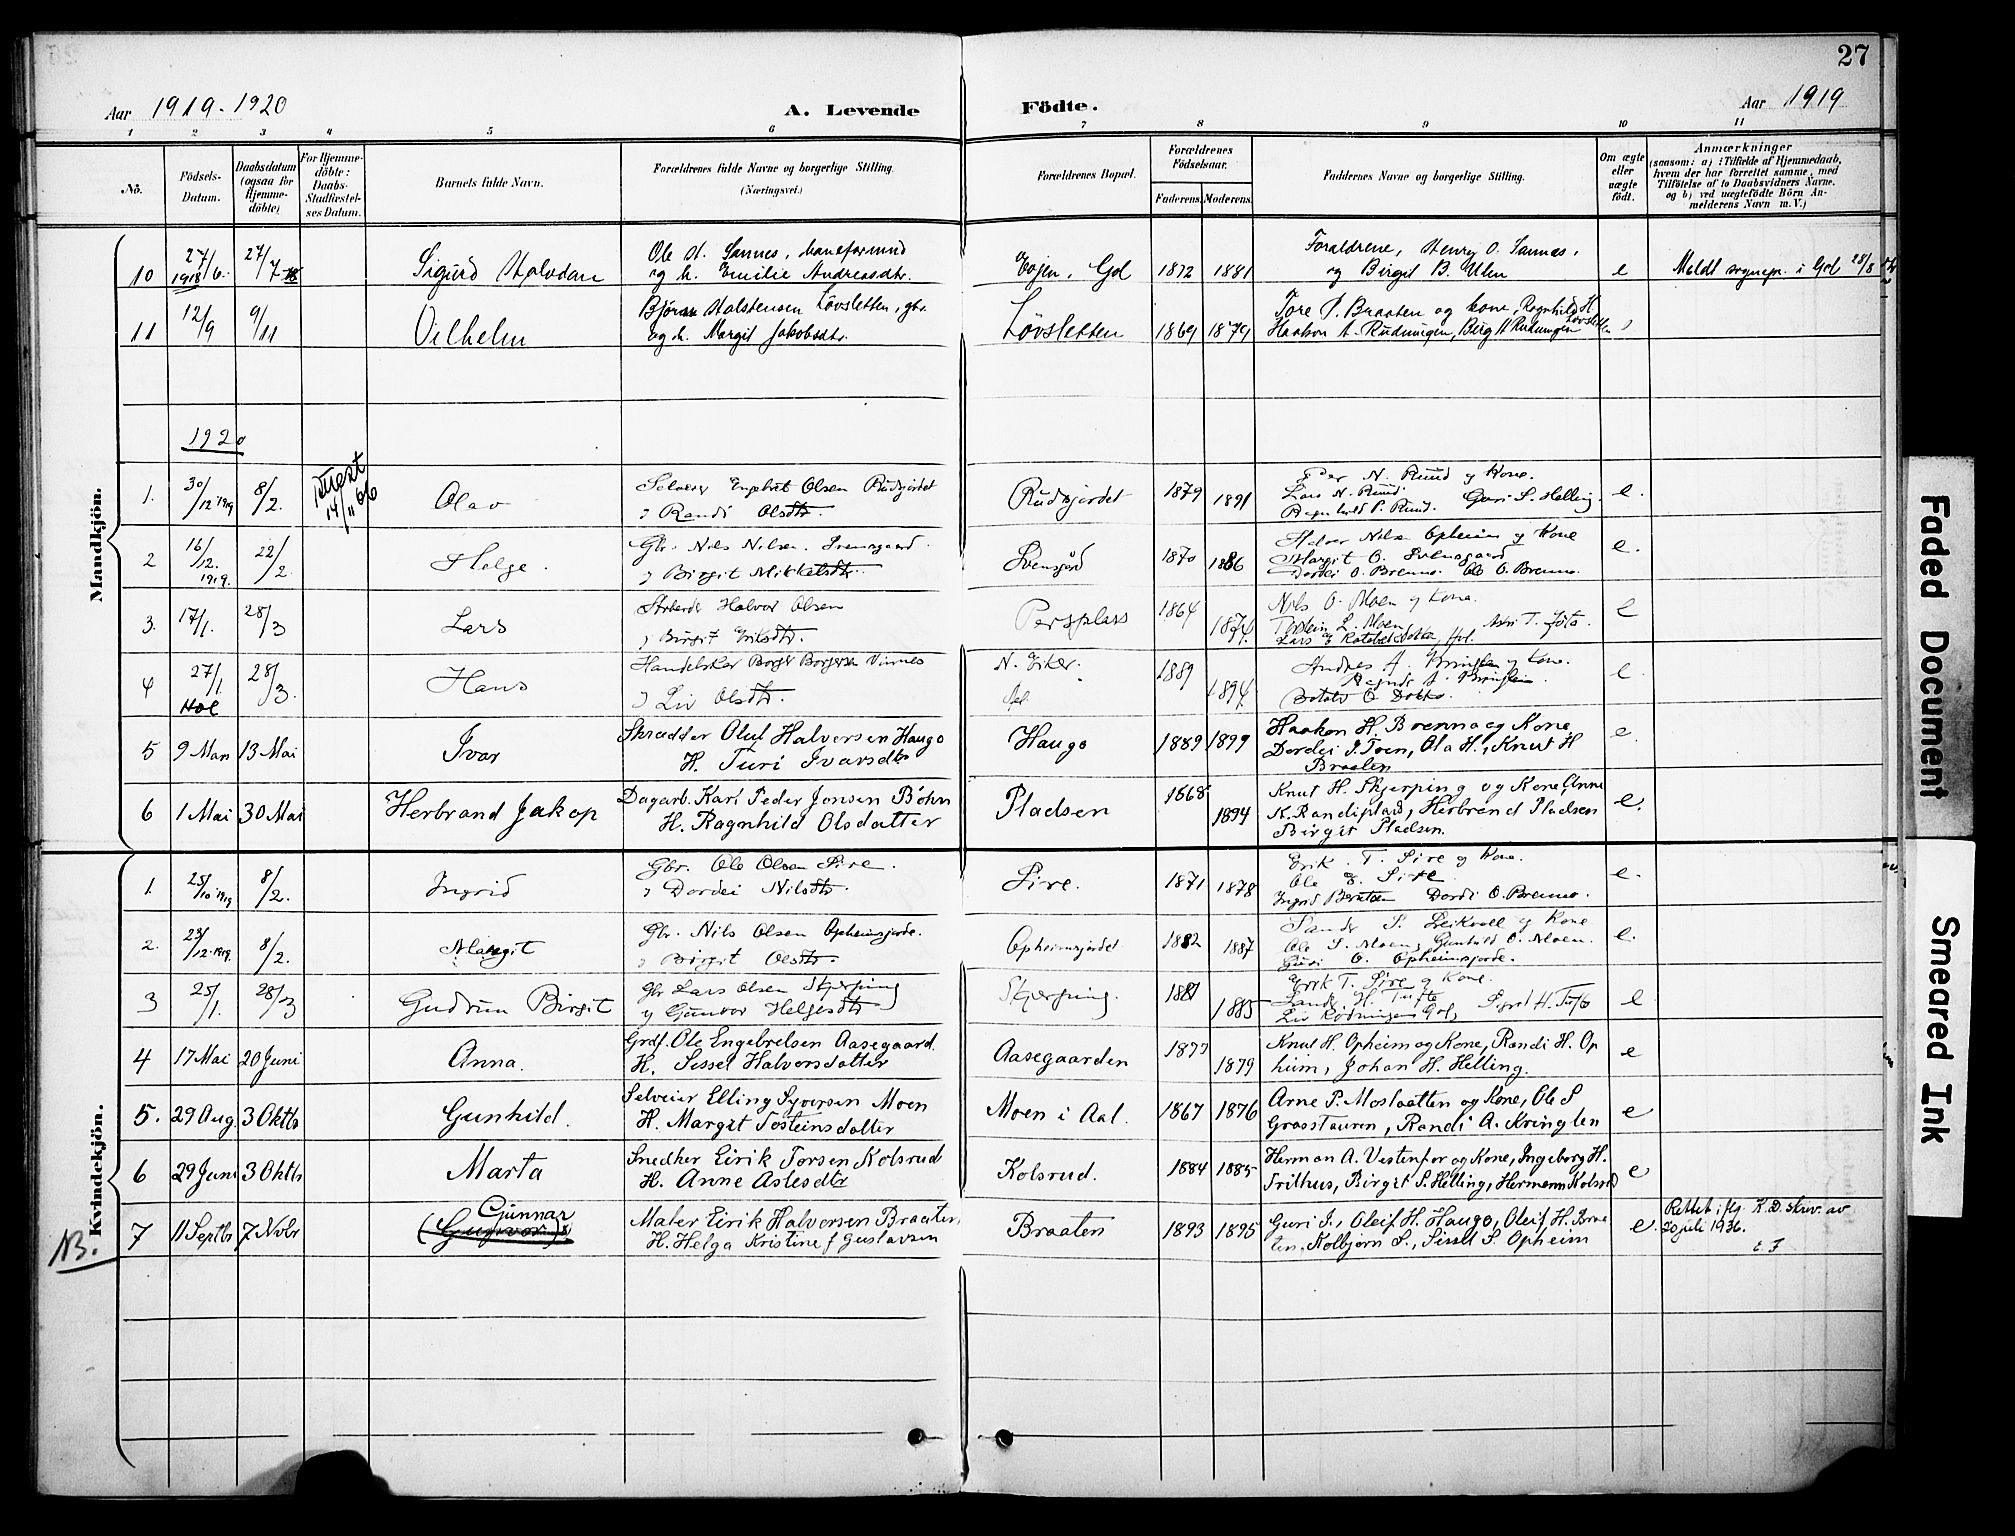 27
Aar 1919-1920
A. Levende Födte.
Aar 1919
1 2 3 4 5 6 7 8 9 10 11
Nö.
Födsels-Datum.
Daabsdatum (ogsaa for Hjemme-döbte)
For Hjemme-döbte: Daabs-Stadfæstel-ses Datum.
Barnets fulde Navn.
Forældrenes fulde Navne og borgerlige Stilling.
(Næringsvei.)
Forældrenes Bopæl.
Forældrenes Födselsaar.
Faderens. Moderens.
Faddernes Navne og borgerlige Stilling.
Om ægte eller uægte födt.
Anmærkninger
(saasom: a) i Tilfælde af Hjemmedaab,
hvem der har forrettet samme, med
Tilföielse af to Daabsvidners Navne,
og b) ved uægtefödte Börn An-
melderens Navn m. V.)
Mandkjön.
10 27/6. 1918 27/7 18 Sigurd Halvdan
Ole H. Sannes, baneformand
og h. Emilie Andreasdtr.
Gol 1872 1881
Forældrene, Henry O. Sannes,
og Birgit B. Ulen
e
Meldt sognepr. i Gol 28/8
11 12/9 9/11 Vilhelm
Björn Halstensen Lövsletten, gbr.
og h. Margit Jakobsdtr.
Lövsletten 1869 1879
Tore P. Braaten og kone, Ragnhild H. Lövsletten
Haakon A. Rudningen, Birg. H. Rudningen
1920
1. 30/12 1919 8/2. Attest 14/11 66 Olav
Selveier Engebret Olsen Rudsjordet
o Randi Olsdtr.
Rudsjordet 1879 1891
Per N. Ruud og Kone.
Lars N. Ruud. Guri S. Helling.
Ragnhild P. Ruud.
e.
2 16/12. 1919. 22/2 Helge.
Gbr. Nils Nilsen Svensgaard.
o Birgit Mikkelsdtr.
Svensgård 1870 1886
Halvor Nilsen Opheim og Kone
Margit O. Svensgaard
Dordei O. Brenno. Ole O. Brenno.
e.
3. 17/1. 28/3 Lars
Arbeider Halvor Olsen
o Birgit Eriksdtr.
Persplass 1864 1874.
Nils O. Moen og Kone.
Torstein L. Moen
e
4 27/1. Hol 28/3. Hans
Handelskar Borger Borgersen Vinnes
o Liv Olsdtr.
N. Eiker. 1889 1894.
Andres A. Bringlen og Kone.
e
5 9 Mars 13 Mai Ivar
Skrædder Oluf Halversen Haugo
H. Turi Ivarsdtr
Haugo 1889 1899
Haakon H. Brenno og Kone,
Dordei I. Toen, Ola H., Knut H
Braaten
e.
6 1 Mai 30 Mai Herbrand Jakop
Dagarb. Karl Peder Jonsen Böhn
H. Ragnhild Olsdatter
Pladsen 1868 1894
Knut H. Skjerping og Kone, Anne
K. Randiplads, Herbrand Pladsen
Birgit Pladsen.
e.
Kvindekjön.
1. 25/10 1919 8/2. Ingrid
Gbr. Ole Olsen Sire.
o Dordei Nilsdtr.
Sire. 1871 1878
Erik T. Sire og Kone.
Ole E. Sire
Ingrid Berntsen Dordi O. Brenno.
e.
2. 23/12. 1919. 8/2. Margit
Gbr. Nils Olsen Opheimsjorde.
o Birgit Olsdtr.
Opheimsjordet 1882 1887
Sander S. Leikvoll og Kone
Ole S. Moen, Gunhild O. Moen.
Guri O. Opheimsjorde.
e.
3 25/1. 28/3 Gudrun Birgit
Gbr Lars Olsen Skjerping
og Gunvor Helgesdtr
Skjerping. 1881 1885
Erik T. Sire og Kone.
Sander H. Tufte Sigrid H. Tufte
Liv Rödningen Gol,
e
4 17 Mai 20 Juni Anna.
Grdf. Ole Engebretsen Aasegaard.
H. Sissel Halvorsdatter
Aasegaarden 1877 1879
Knut H. Opheim og Kone, Randi H. Op
heim, Johan H. Helling.
e
5. 29 Aug. 3 Oktbr Gunhild.
Selveier Elling Syversen Moen
H. Margit Tosteinsdatter
Moen i Aal. 1867 1876
Arne P. Moslaatten og Kone, Ole S
Grosstauren, Randi A. Kringlen
e
6 29 Juni 3 Oktbr Marta
Snedker Eirik Torsen Kolsrud
H. Anne Aslesdtr
Kolsrud. 1884 1885
Herman A. Vestenfor og Kone, Ingeborg H.
Trithus, Birgit S. Helling, Hermann Kolsrud
e
NB. 7 11 Septbr 7 Novbr Gunnar
(Gunvor)
Maler Eirik Halversen Braaten,
H. Helga Kristine f Gustavsen
Braaten 1893 1895
Guri I., Oleif H. Haugo, Oleif H. Braa
ten, Kolbjörn S., Sissel S. Opheim
e.
Rettet iflg. K.D. skriv. av
20 juli 1936.
E. F
Faded Document
Smeared Ink